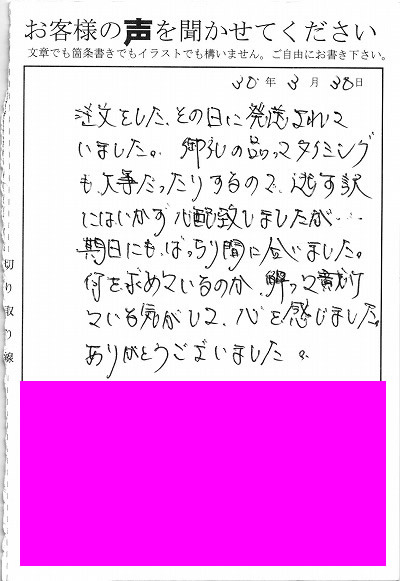 お客様の声を聞かせてください
文章でも箇条書きでもイラストでも構いません。ご自由にお書き下さい。
30年3月30日
注文をした、その日に発送されて
いました。御礼の品ってタイミング
も、大事だったりするので、逃す訳
にはいかず心配致しましたが…
期日にも、ばっちり間に合いました。
何を求めているのか、解って頂け
ている気がして、心を感じました。
ありがとうございました。
切り取り線